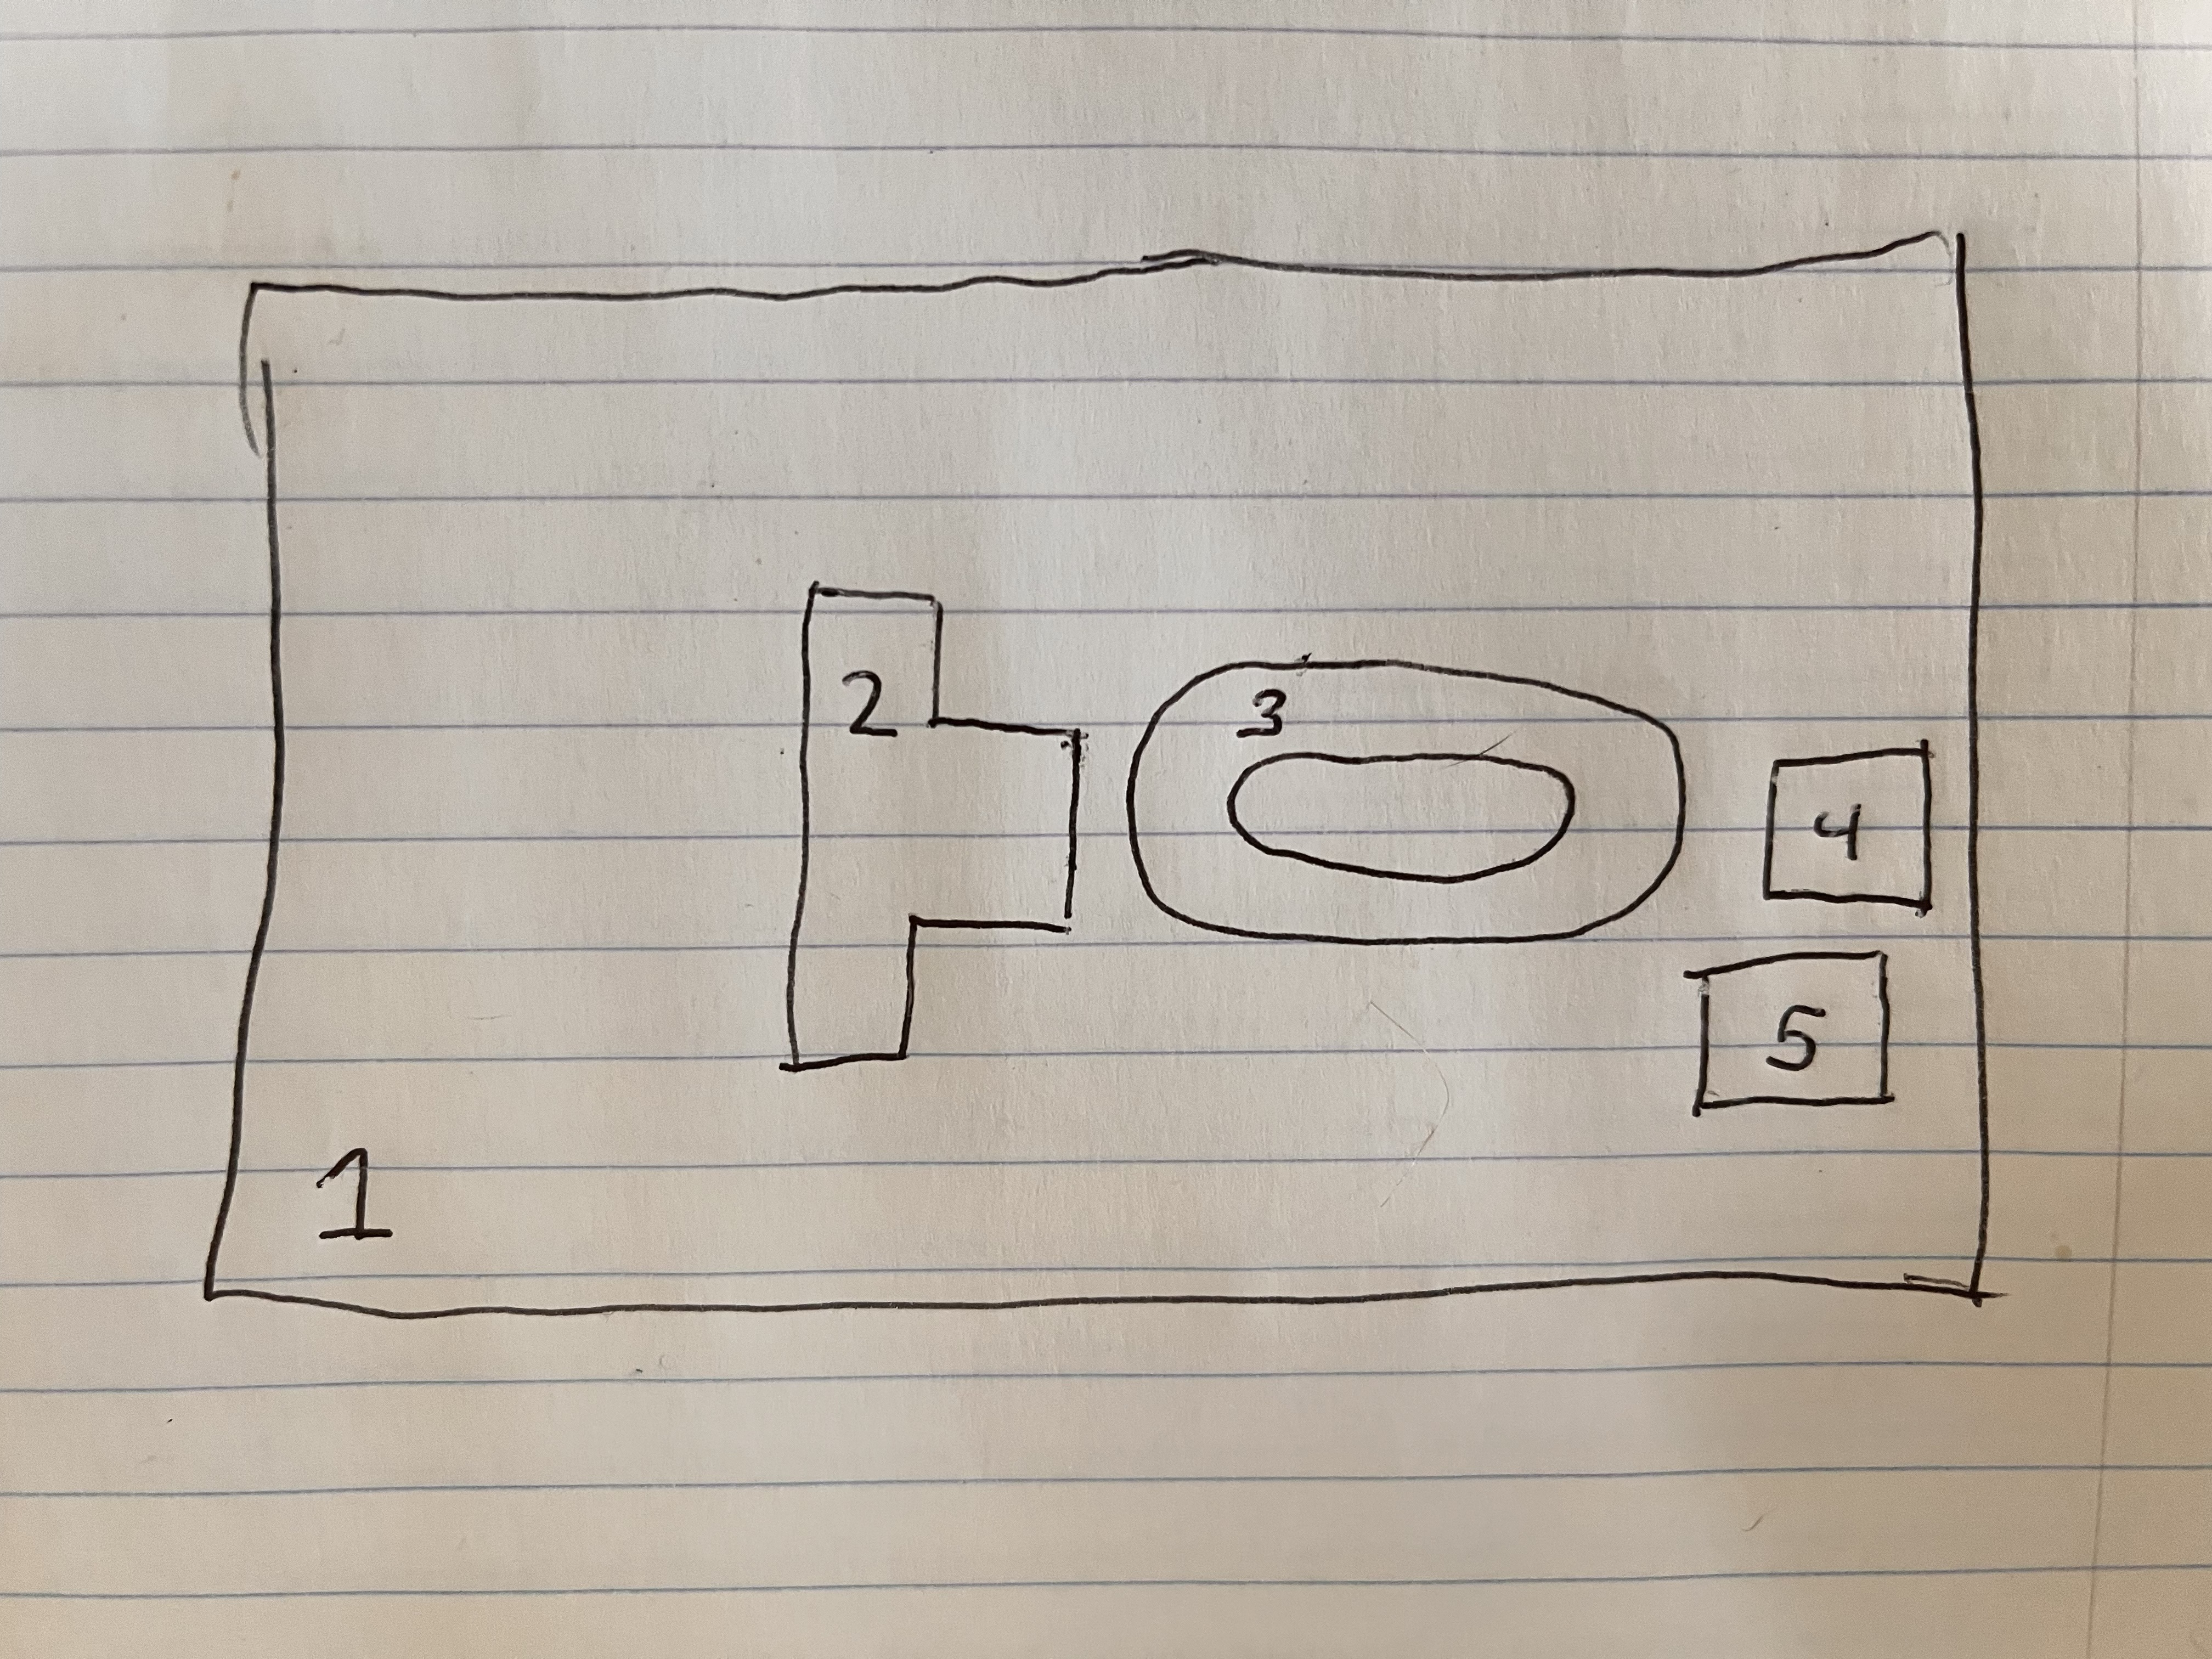 2
3
4
5
1